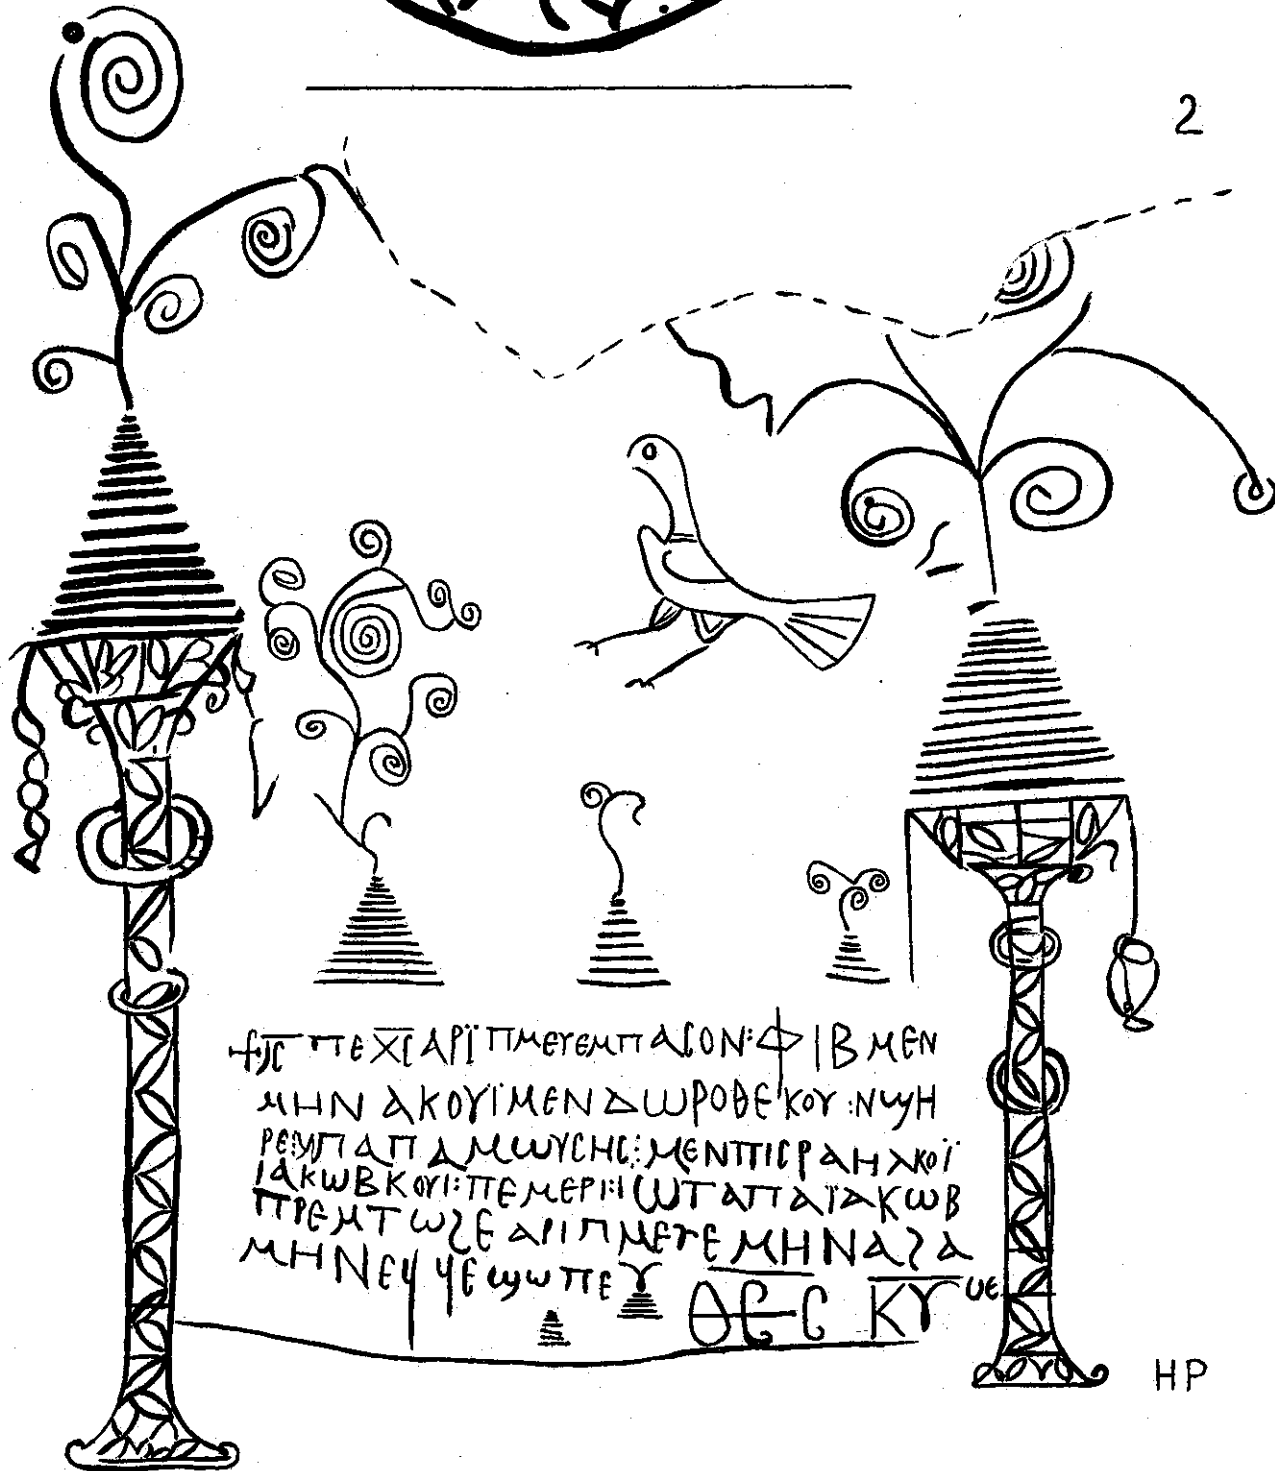 2
⳨ⲓ̅ⲥ̅ ⲡⲉⲭ̅ⲥ̅ ⲁⲣⲓ̈ ⲡⲙⲉⲩⲉ ⲙⲡⲁⲥⲟⲛ: ⲫⲓⲃ ⲙⲉⲛ
ⲙⲏⲛⲁ ⲕⲟⲩⲓ̈ ⲙⲉⲛ ⲇⲱⲣⲟⲑⲉ ⲕⲟⲩ: ⲛϣⲏ
ⲣⲉ: ⲙⲡⲁⲡⲁ ⲙⲱⲩⲥⲏⲥ: ⲙⲉⲛ ⲡⲓⲥⲣⲁⲏⲗ ⲕⲟⲓ̈
ⲓⲁⲕⲱⲃ ⲕⲟⲩⲓ: ⲡⲉⲙⲉⲣⲓⲧ: ⲓⲱⲧ ⲁⲡⲁ ⲓ̈ⲁⲕⲱⲃ
ⲡⲣⲉⲙⲧⲱϩⲉ ⲁⲣⲓ ⲡⲙⲉⲩⲉ ⲙⲏⲛⲁ ϩⲁ
ⲙⲏⲛ ⲉϥϥⲉϣⲱⲡⲉ ⲑ̅ⲥ̅ ⲕ̅ⲩ̅
HP